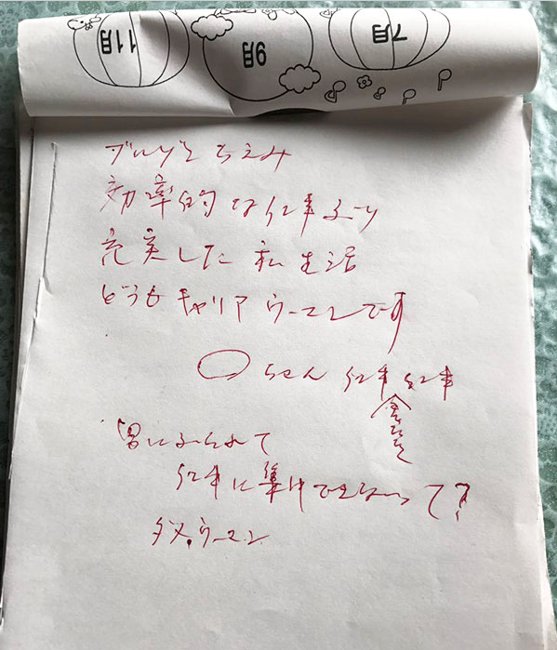 11月 9月 7月
ブルゾン ちえみ
効率的な仕事ぶり
充実した 私生活
どうもキャリアウーマンです
○ちゃん 仕事 仕事
男にふられて
仕事に集中できないって?
ダメウーマン